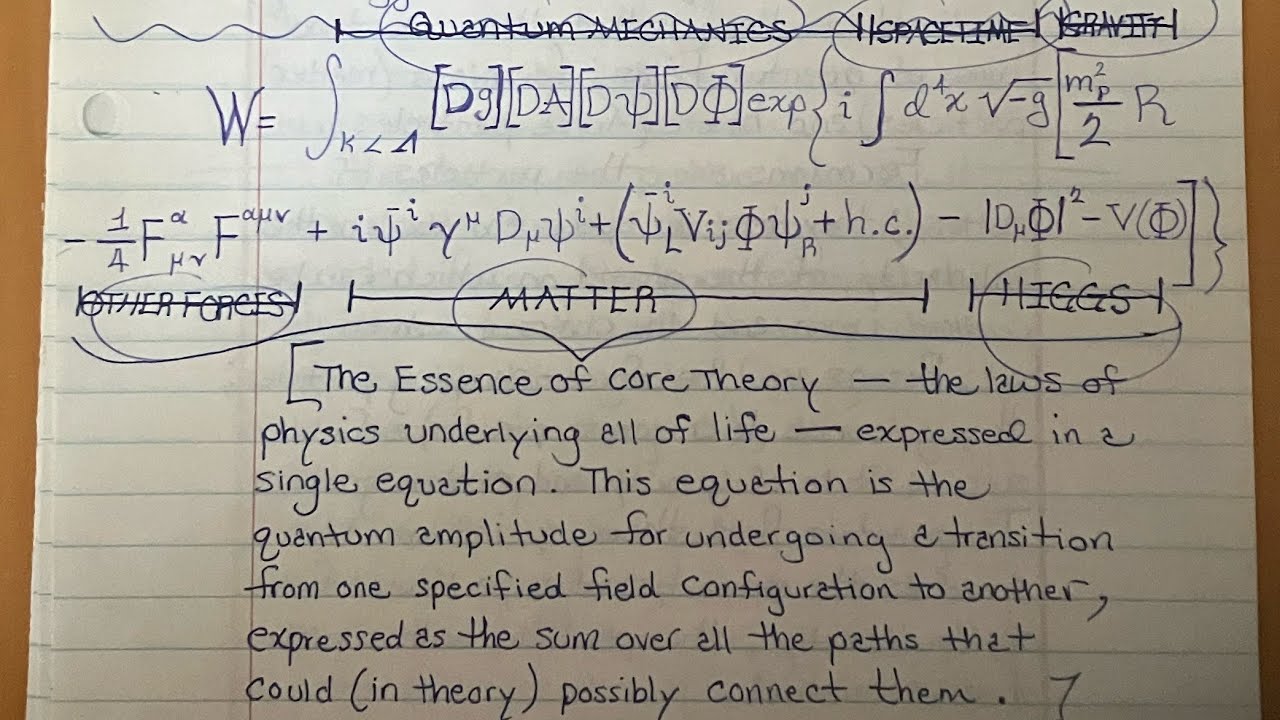 Quantum MECHANICS SPACETIME GRAVITY
W = ∫_{K<Λ} [Dg][DA][Dψ][DΦ] exp{ i ∫ d⁴x √-g [ m_p²/2 R
- 1/4 F^a_{μν} F^{aμν} + i ψ̄^i γ^μ D_μ ψ^i + (ψ̄_L^i V_{ij} Φ ψ_R^j + h.c.) - |D_μΦ|² - V(Φ) ] }
OTHER FORCES MATTER HIGGS
[The Essence of Core Theory — the laws of
physics underlying all of life — expressed in a
single equation. This equation is the
quantum amplitude for undergoing a transition
from one specified field configuration to another,
expressed as the sum over all the paths that
could (in theory) possibly connect them. ]